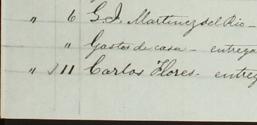 " 6 G. I. Martinez del Rio -
" " Gastos de casa - entrega
" 11 Carlos Flores - entreg